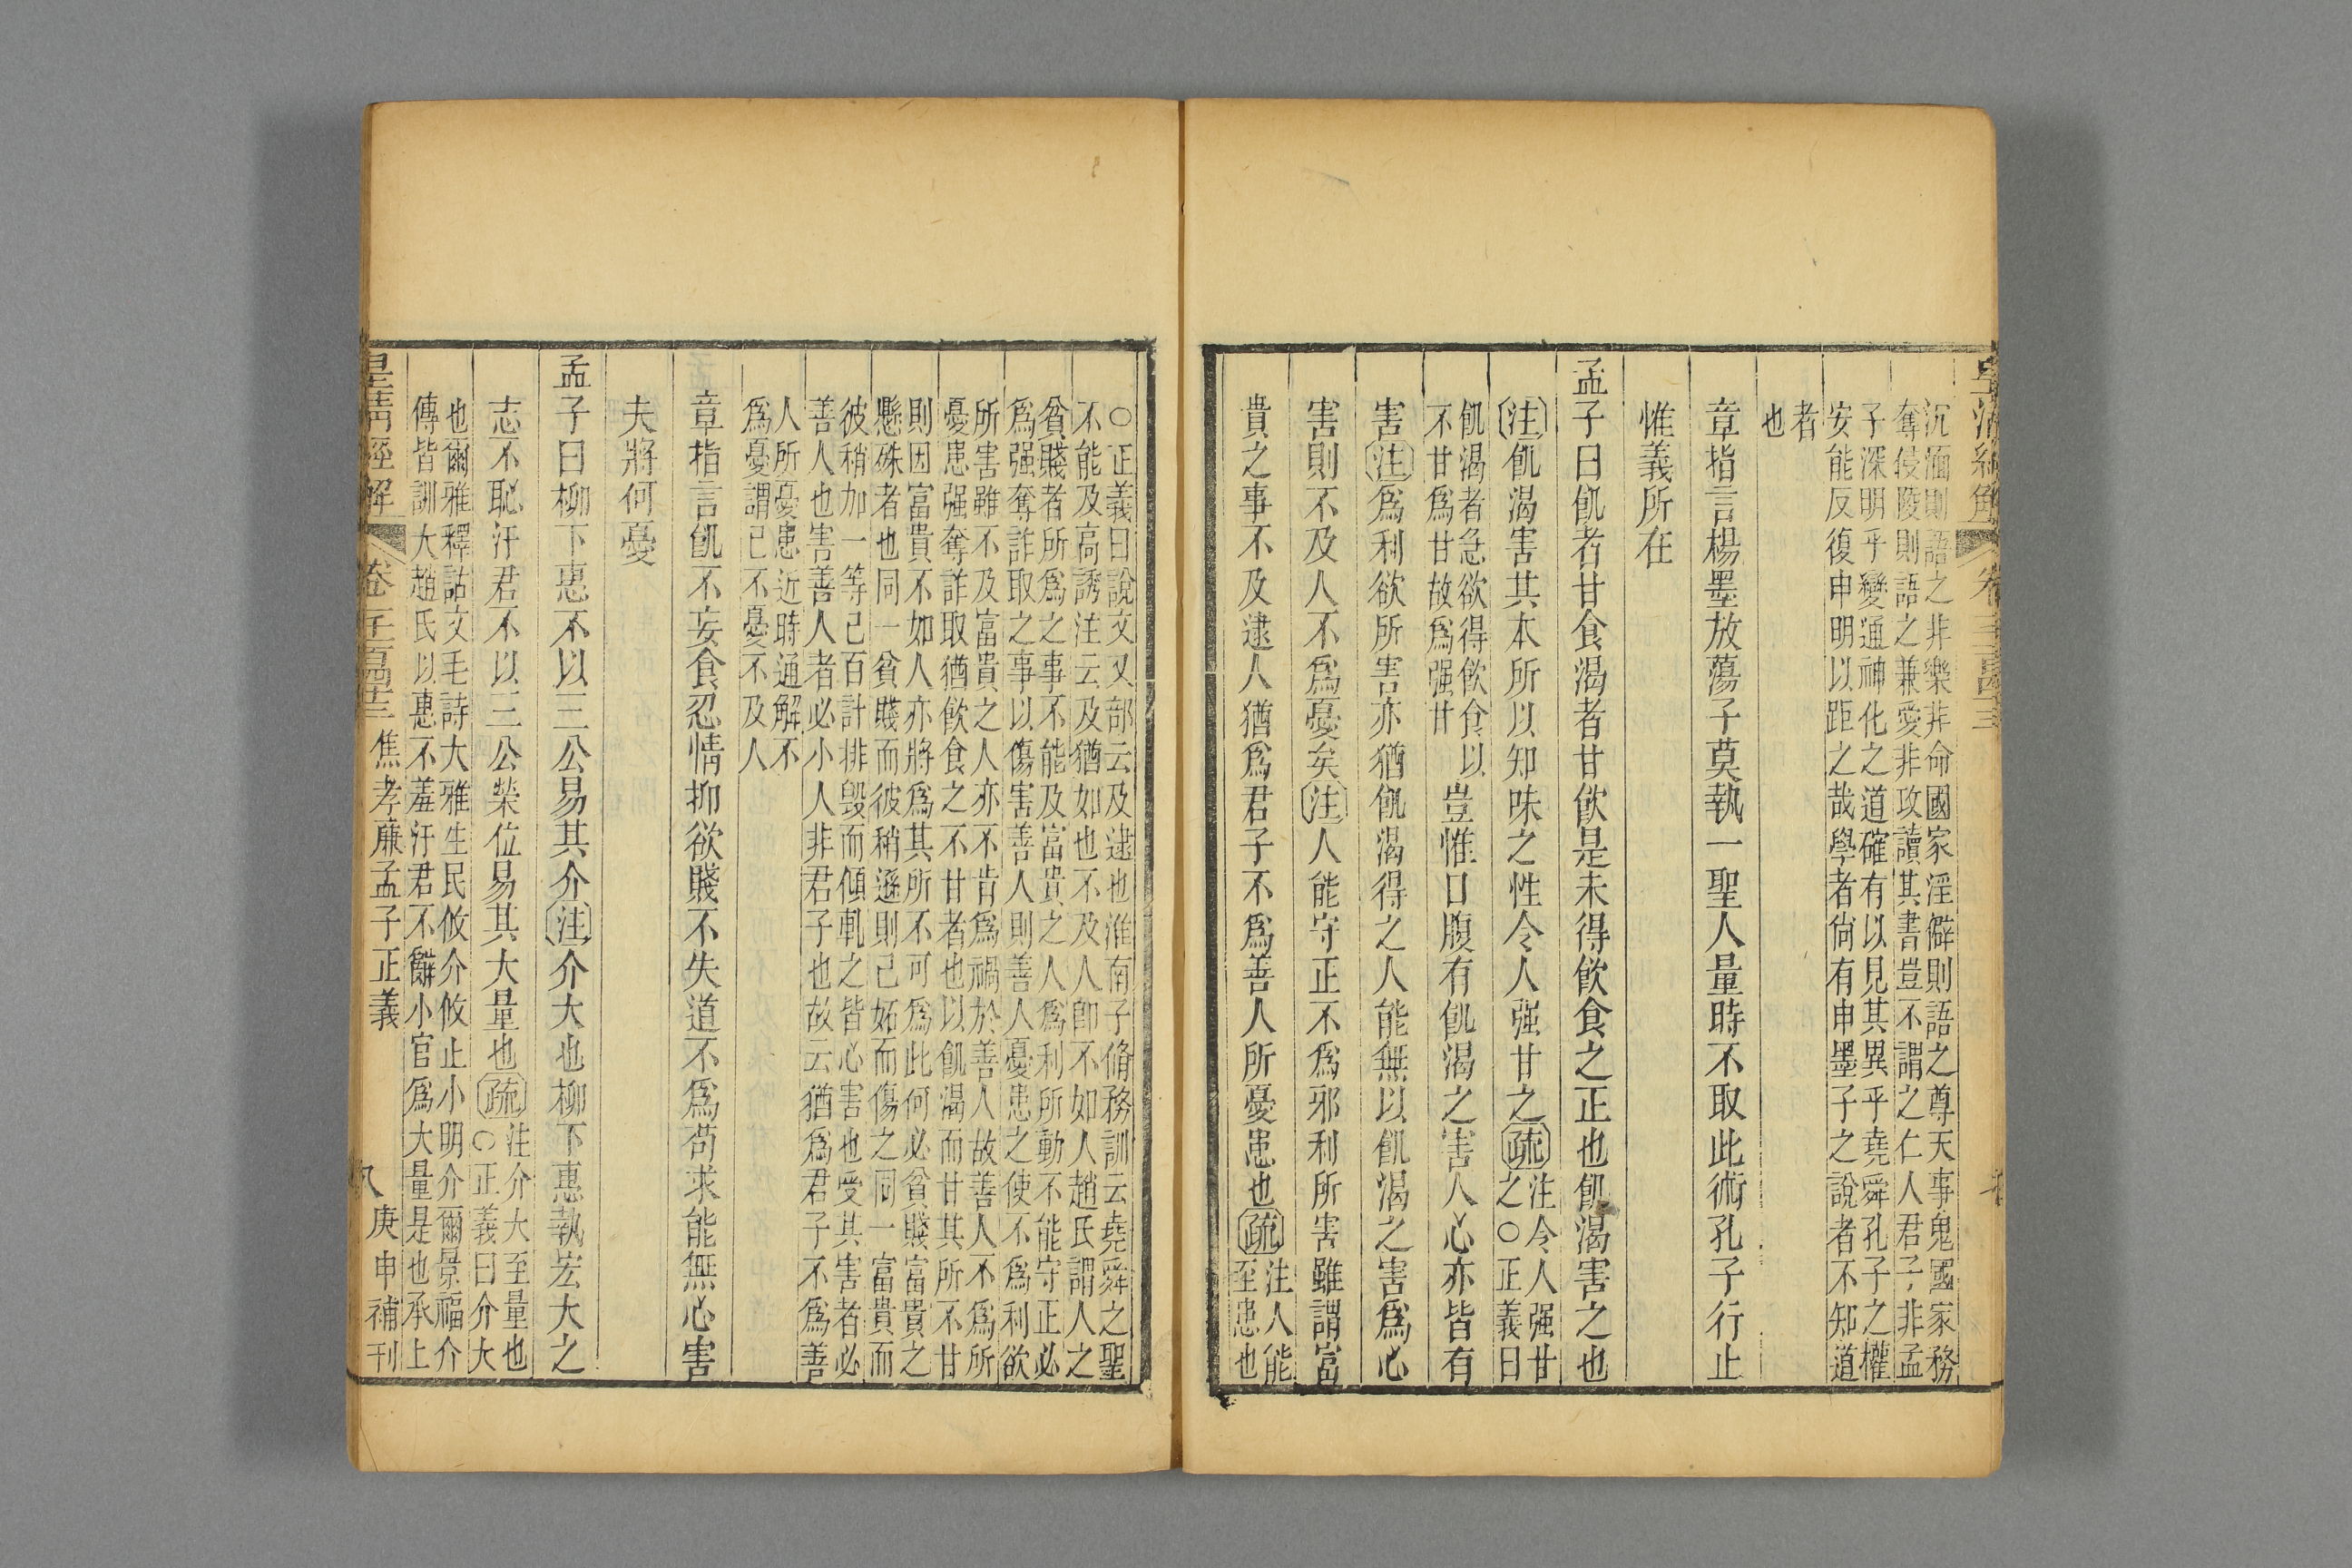 沉湎則語之非樂非命國家淫僻則語之尊天事鬼國家務
奪侵陵則語之兼愛非攻讀其書豈不謂之仁人君子非孟
子深明乎變通神化之道確有以見其異乎堯舜孔子之權
安能反復申明以距之哉學者倘有申墨子之說者不知道
者
也
章指言楊墨放蕩子莫執一聖人量時不取此術孔子行止
惟義所在
孟子曰飢者甘食渴者甘飲是未得飲食之正也飢渴害之也
注飢渴害其本所以知味之性令人强甘之疏
注令人强甘
之○正義曰
飢渴者急欲得飲食以
不甘爲甘故爲强甘
豈惟口腹有飢渴之害人心亦皆有
害注爲利欲所害亦猶飢渴得之人能無以飢渴之害爲心
害則不及人不爲憂矣注人能守正不爲邪利所害雖謂富
貴之事不及逮人猶爲君子不爲善人所憂患也疏
注人能
至患也
○正義曰說文又部云及逮也淮南子脩務訓云堯舜之聖
不能及高誘注云及猶如也不及人卽不如人趙氏謂人之
貧賤者所爲之事不能及富貴之人爲利所動不能守正必
爲强奪詐取之事以傷害善人則善人憂患之使不爲利欲
所害雖不及富貴之人亦不肯爲禍於善人故善人不爲所
憂患强奪詐取猶飲食之不甘者也以飢渴而甘其所不甘
則因富貴不如人亦將爲其所不可爲此何必貧賤富貴之
懸殊者也同一貧賤而彼稍遜則己妬而傷之同一富貴而
彼稍加一等己百計排毀而傾軋之皆心害也受其害者必
善人也害善人者必小人非君子也故云猶爲君子不爲善
人所憂患近時通解不
爲憂謂己不憂不及人
章指言飢不妄食忍情抑欲賤不失道不爲苟求能無心害
夫將何憂
孟子曰柳下惠不以三公易其介注介大也柳下惠執宏大之
志不恥汙君不以三公榮位易其大量也疏
注介大至量也
○正義曰介大
也爾雅釋詁文毛詩大雅生民攸介攸止小明介爾景福介
傳皆訓大趙氏以惠不羞汙君不辭小官爲大量是也承上
皇清經解
焦孝廉孟子正義
八
庚申補刊